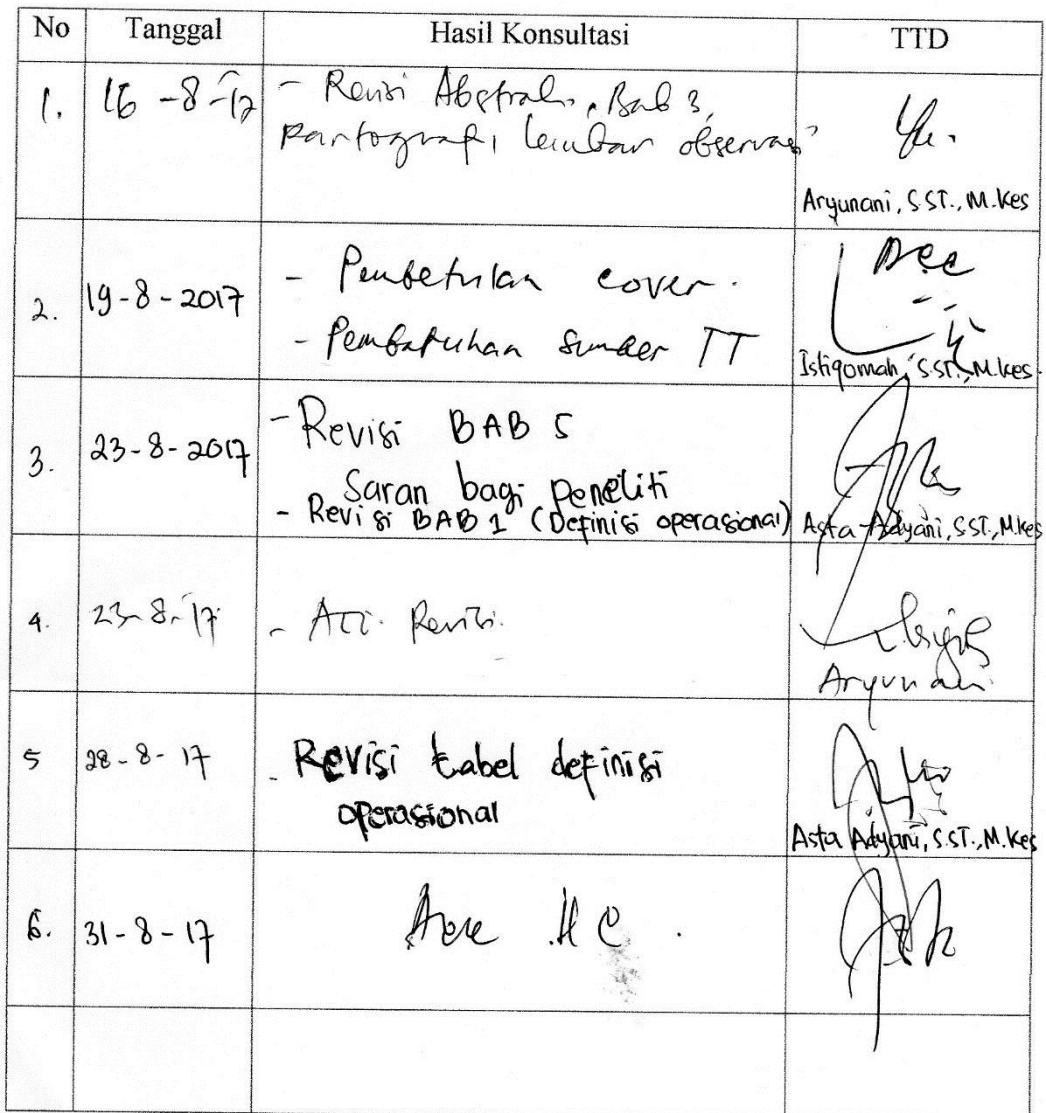 No Tanggal Hasil Konsultasi TTD
1. 16-8-17 - Revisi Abstrak, Bab 3,
partograf, lembar observasi
Aryunani, S.ST., M.Kes
2. 19-8-2017 - Pembetulan cover.
Acc
- sumber TT
Istiqomah, S.ST., M.Kes.
3. 23-8-2017 - Revisi BAB 5
Saran bagi peneliti
- Revisi BAB 1 (Definisi operasional) Asta Adyani, S.ST., M.Kes
4. 23-8-17 - Acc. Revisi.
Aryunani
5 28-8-17 - Revisi tabel definisi
operasional
Asta Adyani, S.ST., M.Kes
6. 31-8-17 Acc